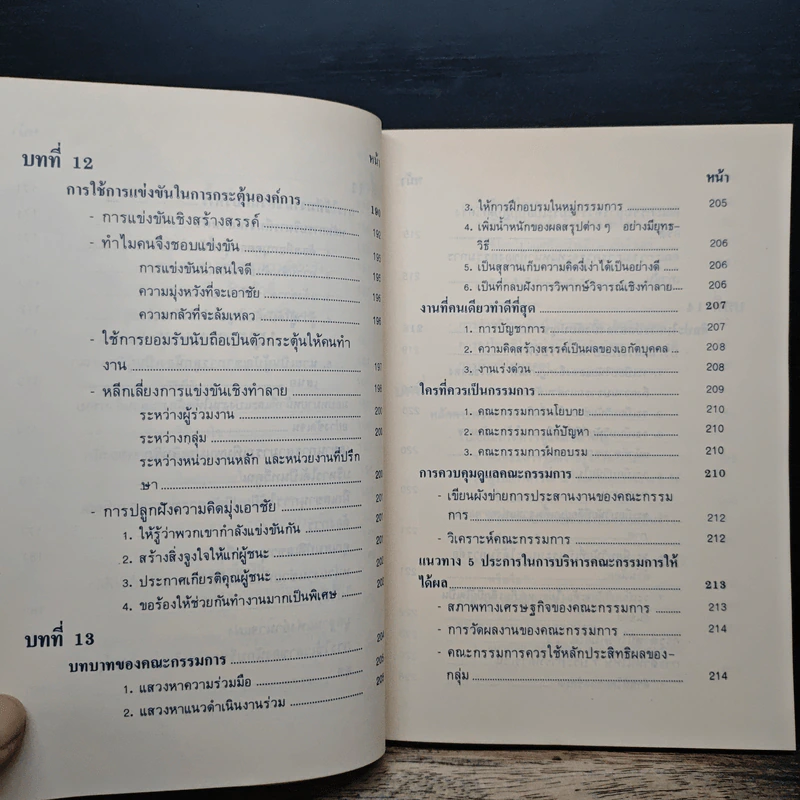 บทที่ 12
หน้า
การใช้การแข่งขันในการกระตุ้นองค์การ 190
- การแข่งขันเชิงสร้างสรรค์
- ทำไมคนจึงชอบแข่งขัน
การแข่งขันน่าสนใจดี
ความมุ่งหวังที่จะเอาชัย
ความกลัวที่จะล้มเหลว
- ใช้การยอมรับนับถือเป็นตัวกระตุ้นให้คนทำ
งาน
- หลีกเลี่ยงการแข่งขันเชิงทำลาย
ระหว่างผู้ร่วมงาน
ระหว่างกลุ่ม
ระหว่างหน่วยงานหลัก และหน่วยงานที่ปรึก
ษา
- การปลูกฝังความคิดมุ่งเอาชัย
1. ให้รู้ว่าพวกเขากำลังแข่งขันกัน
2. สร้างสิ่งจูงใจให้แก่ผู้ชนะ
3. ประกาศเกียรติคุณผู้ชนะ
4. ขอร้องให้ช่วยกันทำงานมากเป็นพิเศษ
บทที่ 13
บทบาทของคณะกรรมการ
1. แสวงหาความร่วมมือ
2. แสวงหาแนวดำเนินงานร่วม
หน้า
3. ให้การฝึกอบรมในหมู่กรรมการ 205
4. เพิ่มน้ำหนักของผลสรุปต่าง ๆ อย่างมียุทธ-
วิธี 206
5. เป็นสุสานเก็บความคิดงี่เง่าได้เป็นอย่างดี 206
6. เป็นที่กลบฝังการวิพากษ์วิจารณ์เชิงทำลาย 206
งานที่คนเดียวทำดีที่สุด 207
1. การบัญชาการ 207
2. ความคิดสร้างสรรค์เป็นผลของเอกัตบุคคล 208
3. งานเร่งด่วน 208
ใครที่ควรเป็นกรรมการ 209
1. คณะกรรมการนโยบาย 210
2. คณะกรรมการแก้ปัญหา 210
3. คณะกรรมการฝึกอบรม 210
การควบคุมดูแลคณะกรรมการ 210
- เขียนผังข่ายการประสานงานของคณะกรรม
การ 212
- วิเคราะห์คณะกรรมการ 212
แนวทาง 5 ประการในการบริหารคณะกรรมการให้
ได้ผล 213
- สภาพทางเศรษฐกิจของคณะกรรมการ 213
- การวัดผลงานของคณะกรรมการ 214
- คณะกรรมการควรใช้หลักประสิทธิผลของ-
กลุ่ม 214